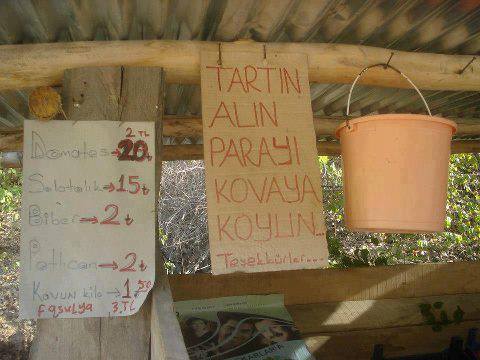 2 TL
Domates→20₺
Salatalık→15₺
Biber→2₺
Patlıcan→2₺
Kavun kilo→1.50₺
fasulya 3 TL
TARTIN
ALIN
PARAYI
KOVAYA
KOYUN...
Teşekkürler...